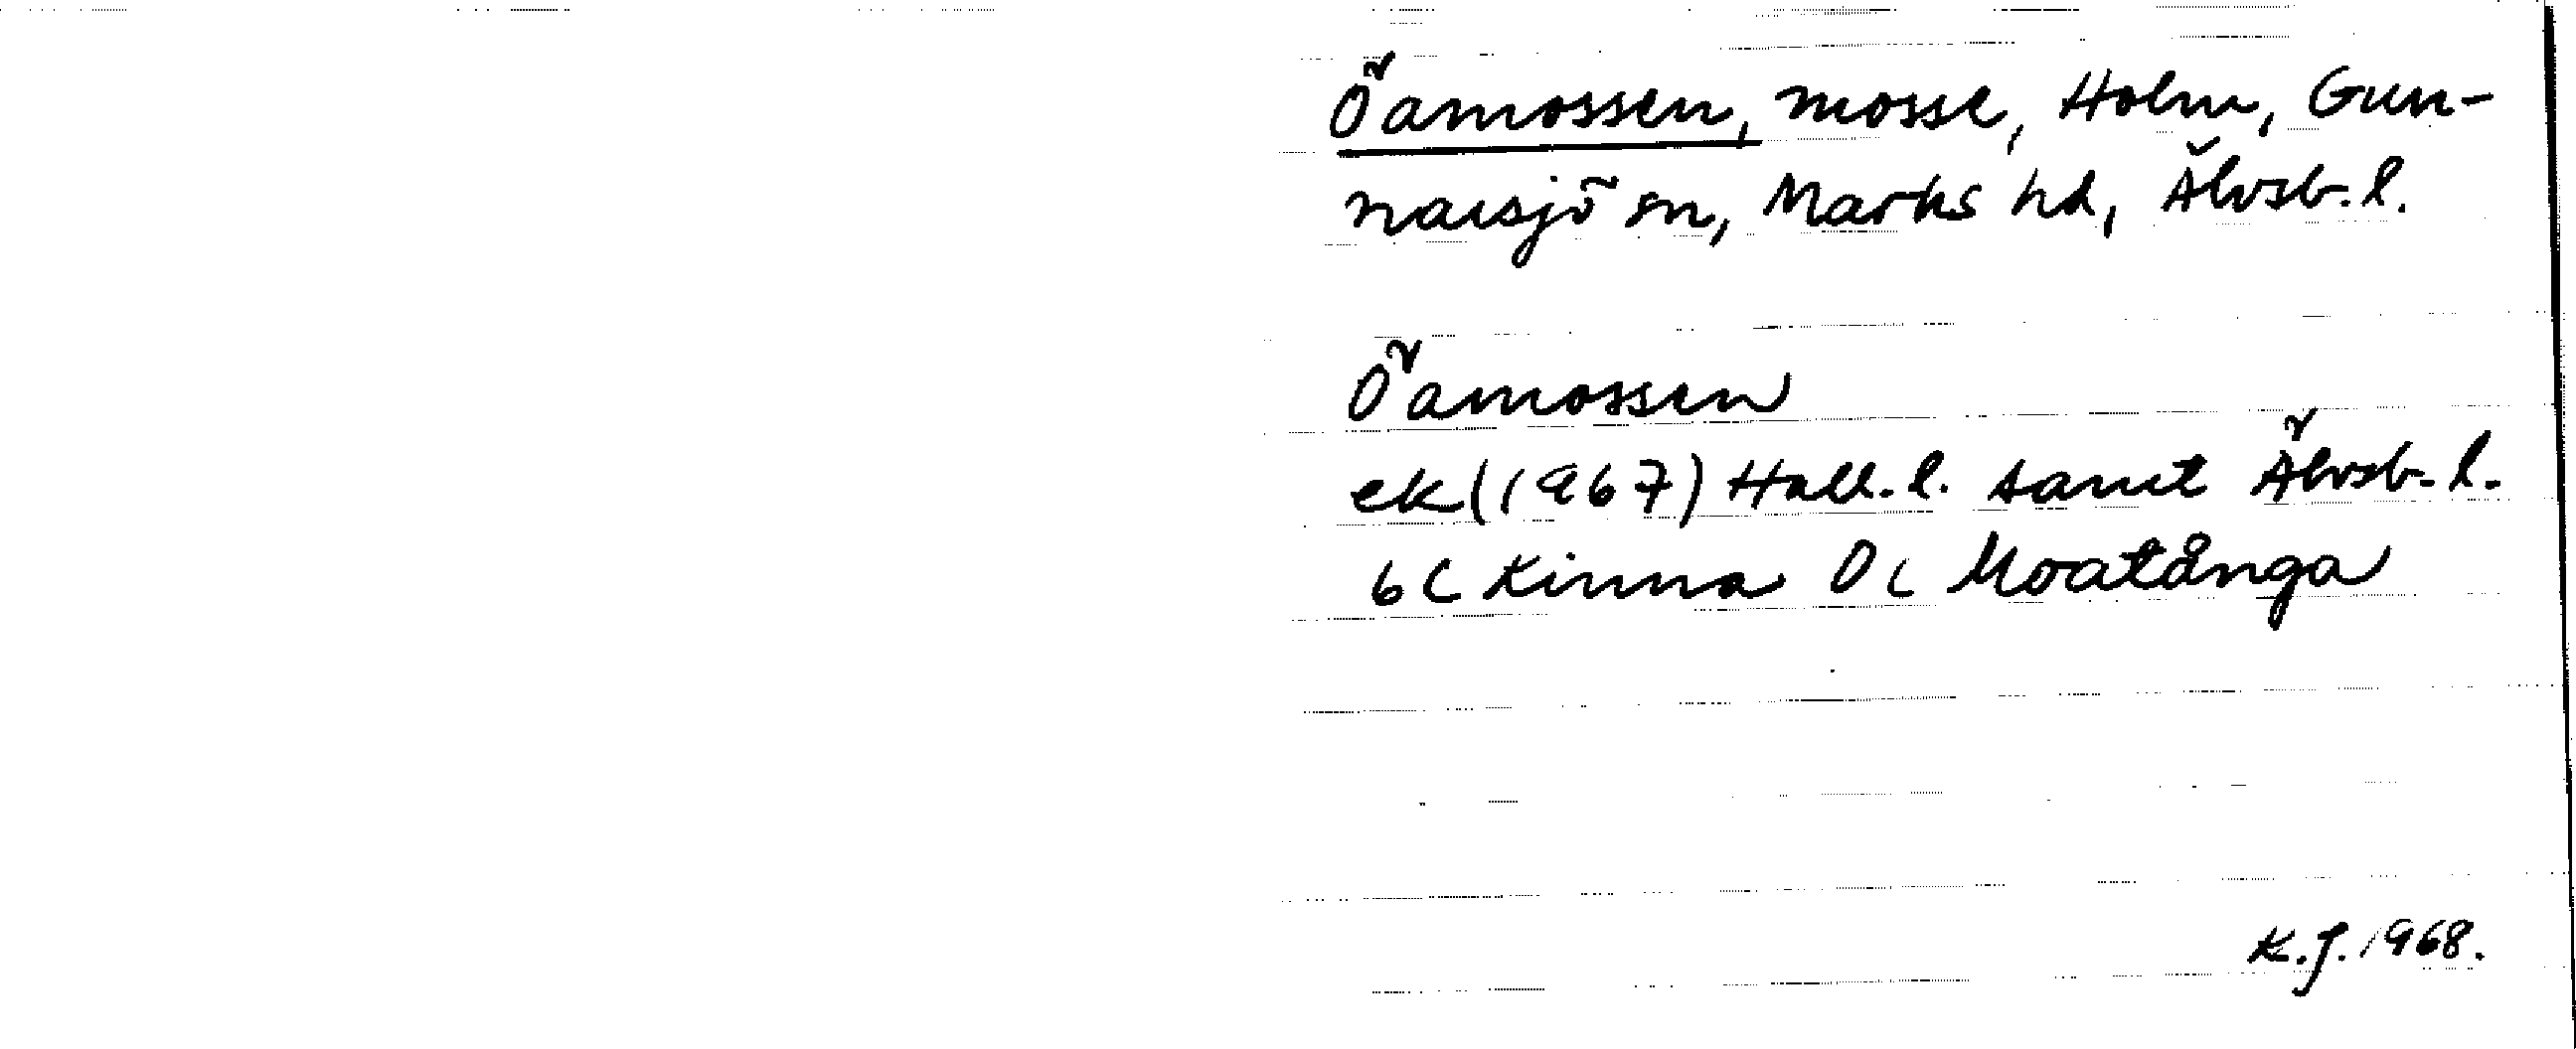 Öamossen, mosse, Holm, Gun-
narsjö sn, Marks hd, Älvsb. l.
Öamossen
ek (1967) Hall. l. samt Älvsb. l.
6C Kinna 0c Moatånga
K.J. 1968.